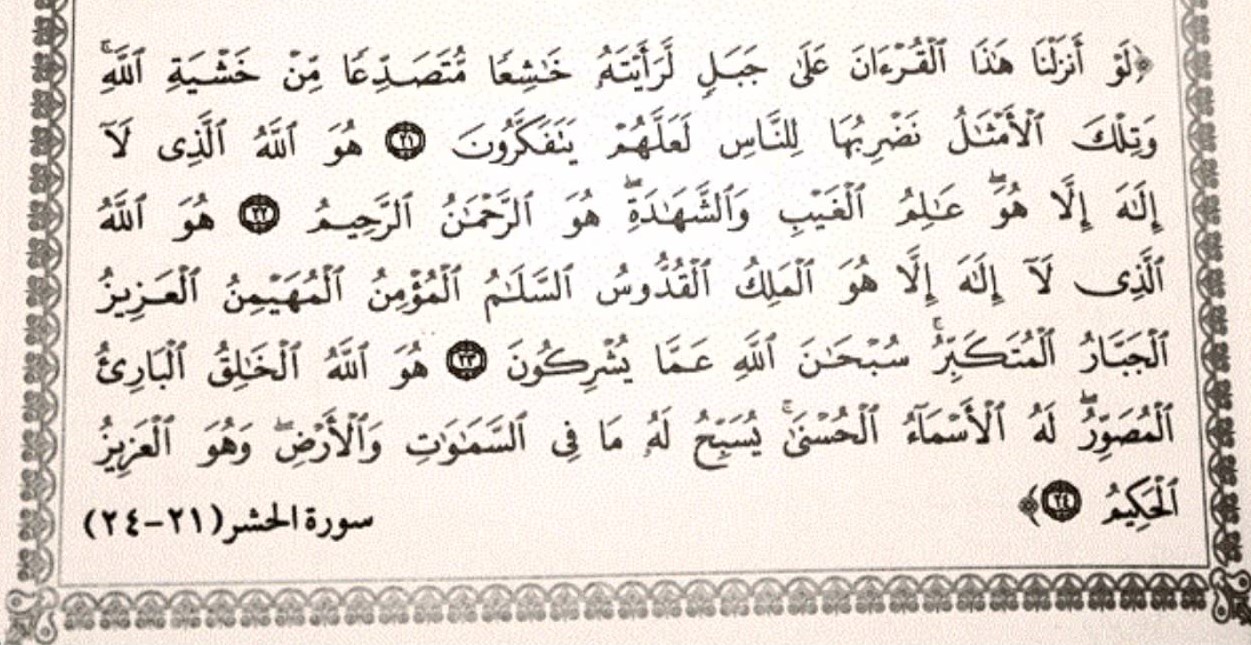 ﴿لَوْ أَنزَلْنَا هَٰذَا ٱلْقُرْءَانَ عَلَىٰ جَبَلٍ لَّرَأَيْتَهُۥ خَٰشِعًا مُّتَصَدِّعًا مِّنْ خَشْيَةِ ٱللَّهِ ۚ
وَتِلْكَ ٱلْأَمْثَٰلُ نَضْرِبُهَا لِلنَّاسِ لَعَلَّهُمْ يَتَفَكَّرُونَ ٢١ هُوَ ٱللَّهُ ٱلَّذِى لَآ
إِلَٰهَ إِلَّا هُوَ ۖ عَٰلِمُ ٱلْغَيْبِ وَٱلشَّهَٰدَةِ ۖ هُوَ ٱلرَّحْمَٰنُ ٱلرَّحِيمُ ٢٢ هُوَ ٱللَّهُ
ٱلَّذِى لَآ إِلَٰهَ إِلَّا هُوَ ٱلْمَلِكُ ٱلْقُدُّوسُ ٱلسَّلَٰمُ ٱلْمُؤْمِنُ ٱلْمُهَيْمِنُ ٱلْعَزِيزُ
ٱلْجَبَّارُ ٱلْمُتَكَبِّرُ ۚ سُبْحَٰنَ ٱللَّهِ عَمَّا يُشْرِكُونَ ٢٣ هُوَ ٱللَّهُ ٱلْخَٰلِقُ ٱلْبَارِئُ
ٱلْمُصَوِّرُ ۖ لَهُ ٱلْأَسْمَآءُ ٱلْحُسْنَىٰ ۚ يُسَبِّحُ لَهُۥ مَا فِى ٱلسَّمَٰوَٰتِ وَٱلْأَرْضِ ۖ وَهُوَ ٱلْعَزِيزُ
ٱلْحَكِيمُ ٢٤﴾
سورة الحشر (٢١-٢٤)